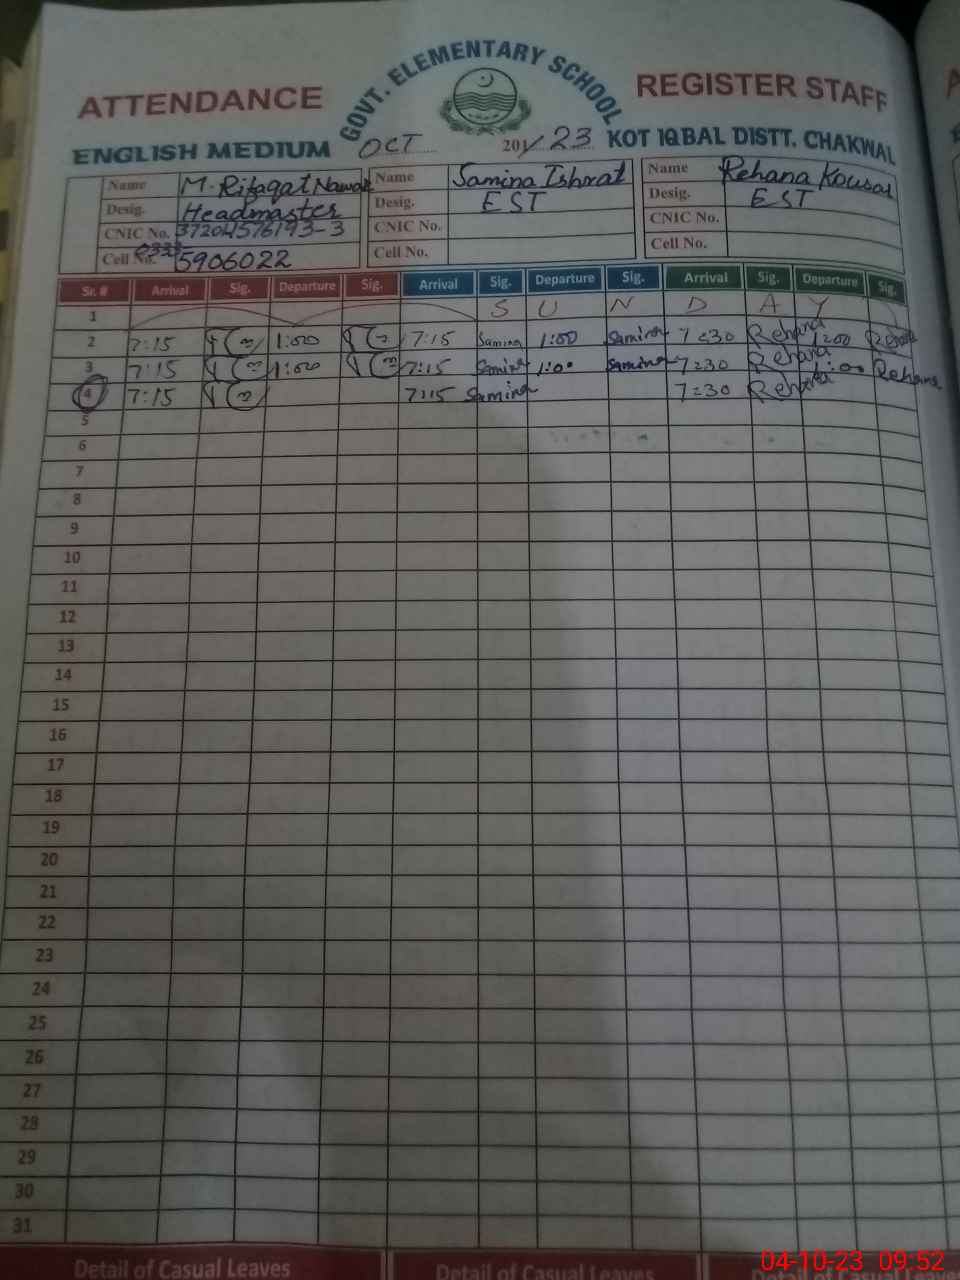 GOVT. ELEMENTARY SCHOOL
ATTENDANCE REGISTER STAFF
ENGLISH MEDIUM OCT 201/23 KOT IQBAL DISTT. CHAKWAL
Name M. Rifaqat Nawaz Name Samina Ishrat Name Rehana Kousar
Desig. Headmaster Desig. EST Desig. EST
CNIC No. 37204576193-3 CNIC No. CNIC No.
Cell No. 0333-5906022 Cell No. Cell No.
Sr. # Arrival Sig. Departure Sig. Arrival Sig. Departure Sig. Arrival Sig. Departure Sig.
1 S U N D A Y
2 7:15 1:00 7:15 Samina 1:00 Samina 7:30 Rehana 1:00 Rehana
3 7:15 1:00 7:15 Samina 1:00 Samina 7:30 Rehana 1:00 Rehana
4 7:15 7:15 Samina 7:30 Rehana
5
6
7
8
9
10
11
12
13
14
15
16
17
18
19
20
21
22
23
24
25
26
27
28
29
30
31
Detail of Casual Leaves Detail of Casual Leaves
04-10-23 09:52